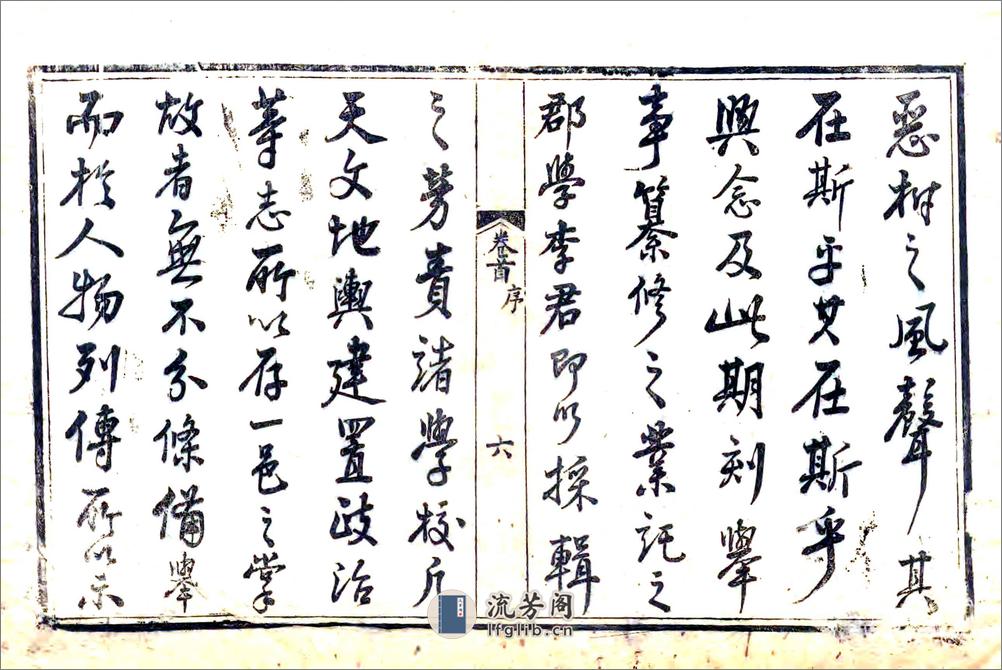 惡樹之風聲其
在斯乎其在斯乎
興念及此期刻舉
事纂修之業託之
郡學李君即以採輯
卷首 序
六
之勞責諸學校凡
天文地輿建置政治
等志所以存一邑之掌
故者無不分條備舉
而於人物列傳所以示
流芳阁
lfglib.cn